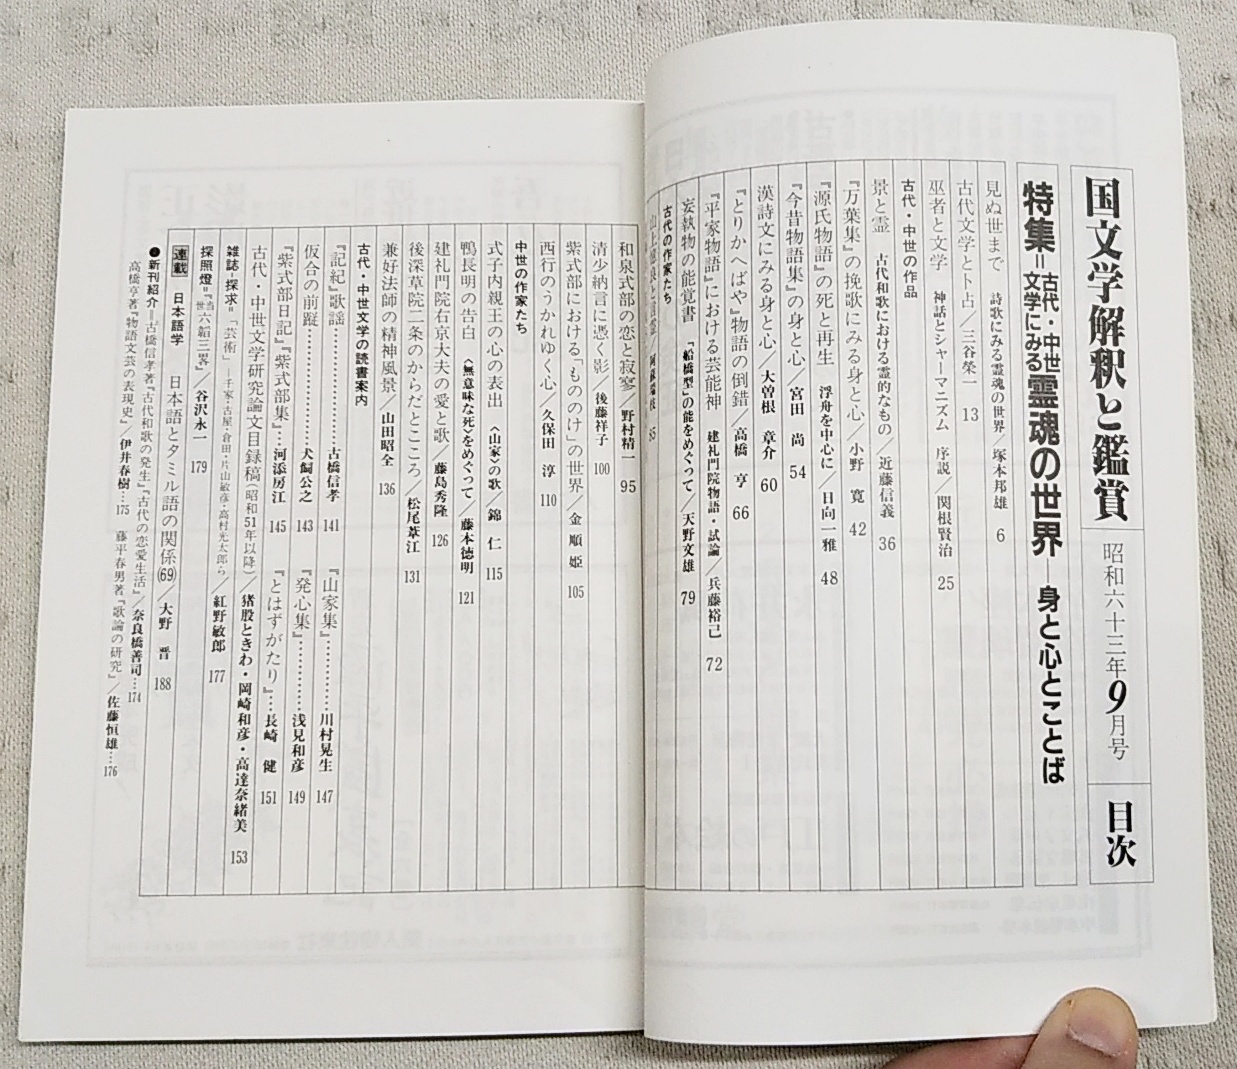 国文学解釈と鑑賞 昭和六十三年9月号 目次
特集=古代・中世文学にみる霊魂の世界―身と心とことば
見ぬ世まで 詩歌にみる霊魂の世界/塚本邦雄 6
古代文学と卜占/三谷榮一 13
巫者と文学 神話とシャーマニズム 序説/関根賢治 25
古代・中世の作品
景と霊 古代和歌における霊的なもの/近藤信義 36
『万葉集』の挽歌にみる身と心/小野 寛 42
『源氏物語』の死と再生 浮舟を中心に/日向一雅 48
『今昔物語集』の身と心/宮田 尚 54
漢詩文にみる身と心/大曽根 章介 60
『とりかへばや』物語の倒錯/高橋 亨 66
『平家物語』における芸能神 建礼門院物語・試論/兵藤裕己 72
妄執物の能覚書 「船橋型」の能をめぐって/天野文雄 79
古代の作家たち
山上憶良と言霊/阿蘇瑞枝 85
和泉式部の恋と寂寥/野村精一 95
清少納言に憑く影/後藤祥子 100
紫式部における「もののけ」の世界/金 順姫 105
西行のうかれゆく心/久保田 淳 110
中世の作家たち
式子内親王の心の表出 〈山家〉の歌/錦 仁 115
鴨長明の告白 〈無意味な死〉をめぐって/藤本徳明 121
建礼門院右京大夫の愛と歌/藤島秀隆 126
後深草院二条のからだとこころ/松尾葦江 131
兼好法師の精神風景/山田昭全 136
古代・中世文学の読書案内
『記紀』歌謡…………古橋信孝 141 『山家集』…………川村晃生 147
仮合の前蹤…………犬飼公之 143 『発心集』…………浅見和彦 149
『紫式部日記』『紫式部集』…河添房江 145 『とはずがたり』…長崎 健 151
古代・中世文学研究論文目録稿(昭和51年以降)/猪股ときわ・岡崎和彦・高達奈緒美 153
雑誌-探求=「芸術」―千家・古屋・倉田・片山敏彦・高村光太郎ら/紅野敏郎 177
探照燈=『当世六韜三畧』/谷沢永一 179
連載 日本語学 日本語とタミル語の関係(69)/大野 晋 188
●新刊紹介=古橋信孝著『古代和歌の発生』『古代の恋愛生活』/奈良橋善司…174
高橋亨著『物語文芸の表現史』/伊井春樹…175 藤平春男著『歌論の研究』/佐藤恒雄…176